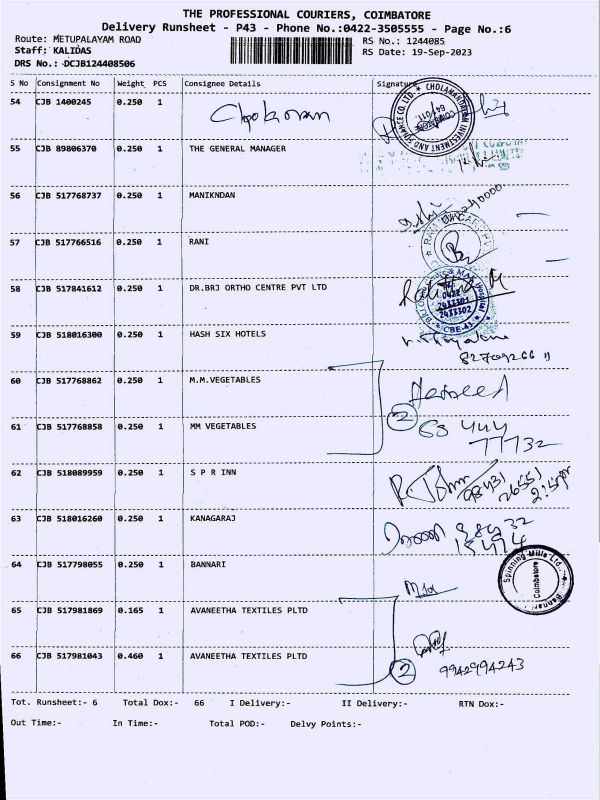 THE PROFESSIONAL COURIERS, COIMBATORE
Delivery Runsheet - P43 - Phone No.:0422-3505555 - Page No.:6
Route: METUPALAYAM ROAD
RS No.: 1244085
Staff: KALIDAS
RS Date: 19-Sep-2023
DRS No.: DCJB124408506
S No Consignment No Weight PCS Consignee Details Signature
54 CJB 1400245 0.250 1
CHOLAMANDALAM INVESTMENT AND FINANCE CO. LTD.
55 CJB 89806370 0.250 1 THE GENERAL MANAGER
56 CJB 517768737 0.250 1 MANIKNDAN
57 CJB 517766516 0.250 1 RANI
58 CJB 517841612 0.250 1 DR.BRJ ORTHO CENTRE PVT LTD
0422
2433301
2433302
59 CJB 518016300 0.250 1 HASH SIX HOTELS
60 CJB 517768862 0.250 1 M.M.VEGETABLES
2
61 CJB 517768858 0.250 1 MM VEGETABLES
63 444
77732
62 CJB 518089959 0.250 1 S P R INN
98431
26551
63 CJB 518016260 0.250 1 KANAGARAJ
64 CJB 517798055 0.250 1 BANNARI
Spinning Mills Ltd.,
Coimbatore
Bannari
65 CJB 517981869 0.165 1 AVANEETHA TEXTILES PLTD
66 CJB 517981043 0.460 1 AVANEETHA TEXTILES PLTD
2
9942994243
Tot. Runsheet:- 6 Total Dox:- 66 I Delivery:- II Delivery:- RTN Dox:-
Out Time:- In Time:- Total POD:- Delvy Points:-